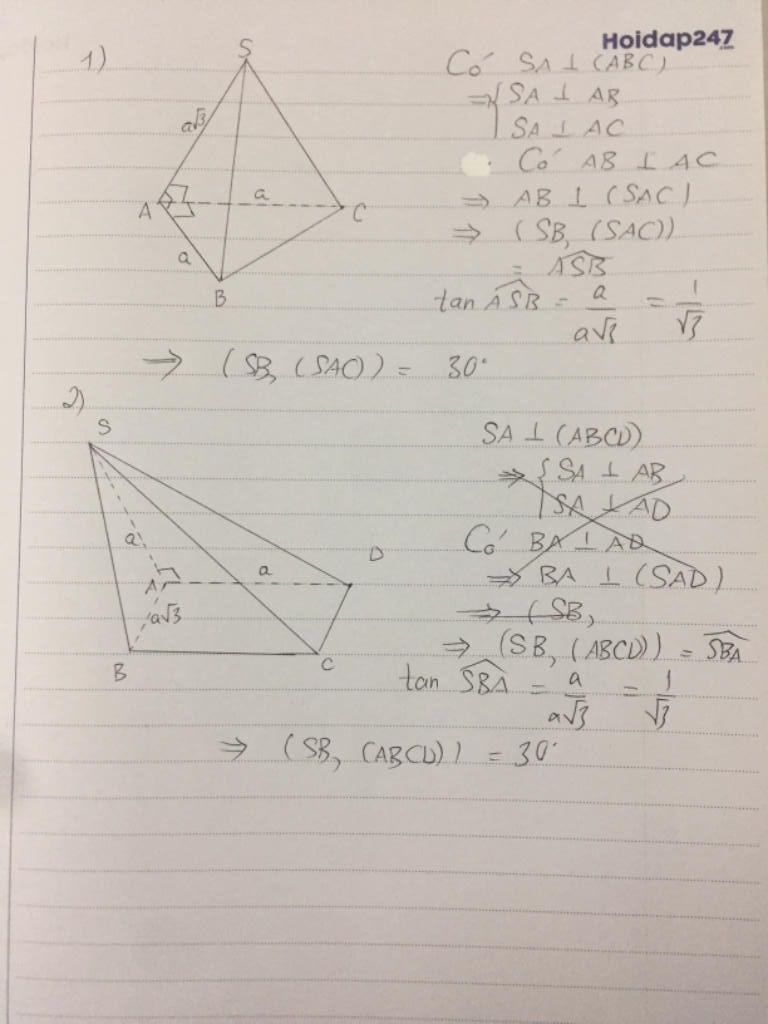 Hoidap247.com
1)
S
a√3
A
a
C
a
B
Có SA ⊥ (ABC)
⇒ { SA ⊥ AB
SA ⊥ AC
Có AB ⊥ AC
⇒ AB ⊥ (SAC)
⇒ (SB, (SAC))
= ASB
tan ASB = a/a√3 = 1/√3
⇒ (SB, (SAC)) = 30°
2)
S
a
A
a
D
a√3
B
C
SA ⊥ (ABCD)
⇒ { SA ⊥ AB
SA ⊥ AD
Có BA ⊥ AD
⇒ BA ⊥ (SAD)
⇒ (SB,
⇒ (SB, (ABCD)) = SBA
tan SBA = a/a√3 = 1/√3
⇒ (SB, (ABCD)) = 30°